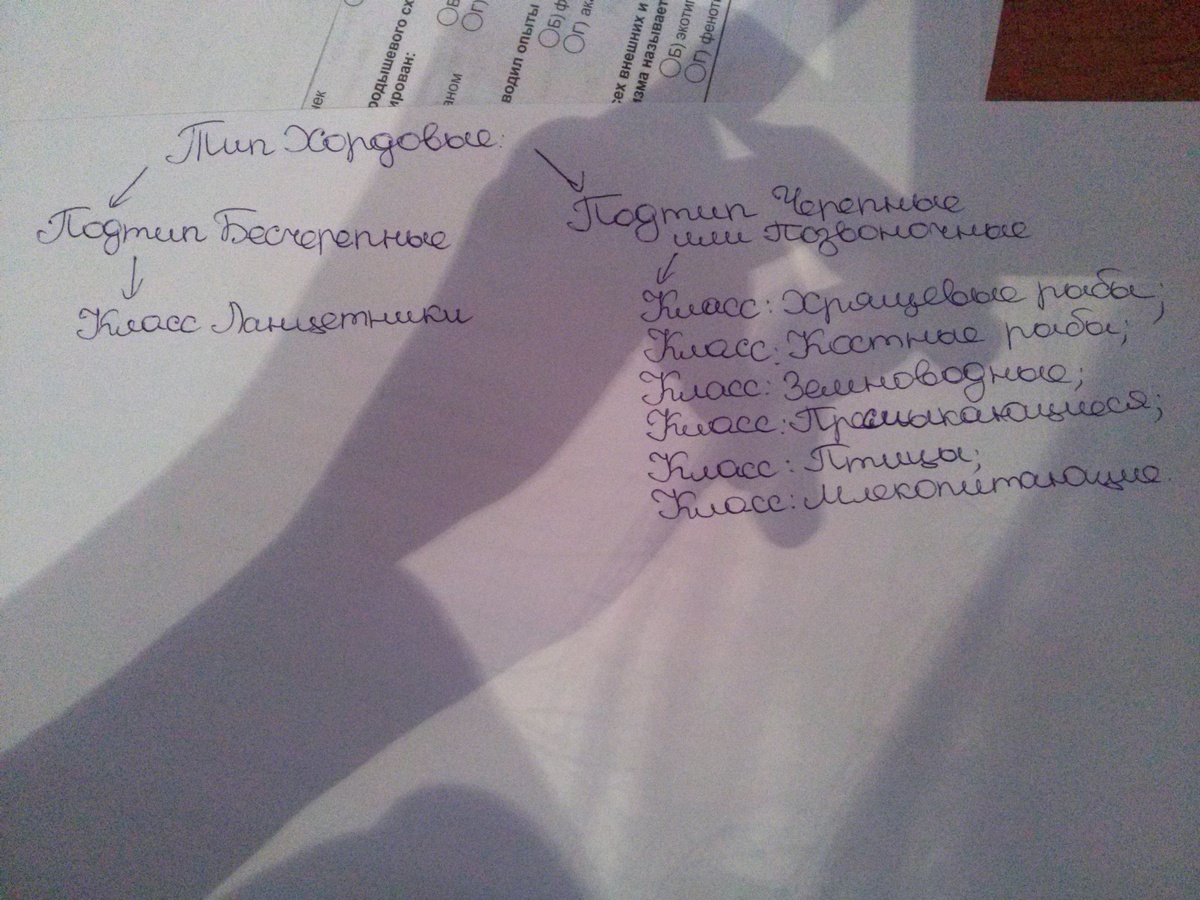 чек
родышевого сх
ирован:
ОБ
ОГ)
аном
водил опыты
ОБ) ф
ОГ) ак
сех внешних и
изма называет
ОБ) экотип
ОГ) фенот
Тип Хордовые:
Подтип Бесчерепные
Подтип Черепные
или Позвоночные
Класс Ланцетники
Класс: Хрящевые рыбы;
Класс: Костные рыбы;
Класс: Земноводные;
Класс: Пресмыкающиеся;
Класс: Птицы;
Класс: Млекопитающие.